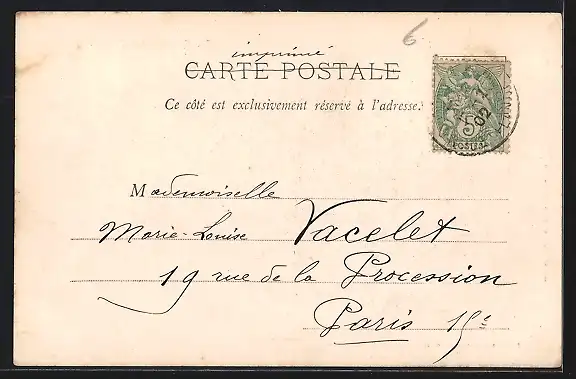 6
imprimé
CARTE POSTALE
Ce côté est exclusivement réservé à l'adresse.
5
POSTES
02
Mademoiselle
Marie-Louise Vacelet
19 rue de la Procession
Paris 15e